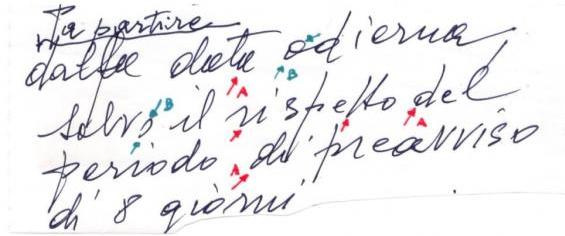 a partire
dalla data odierna,
B
A B
salvo il rispetto del
A
periodo di preavviso
A
di 8 giorni